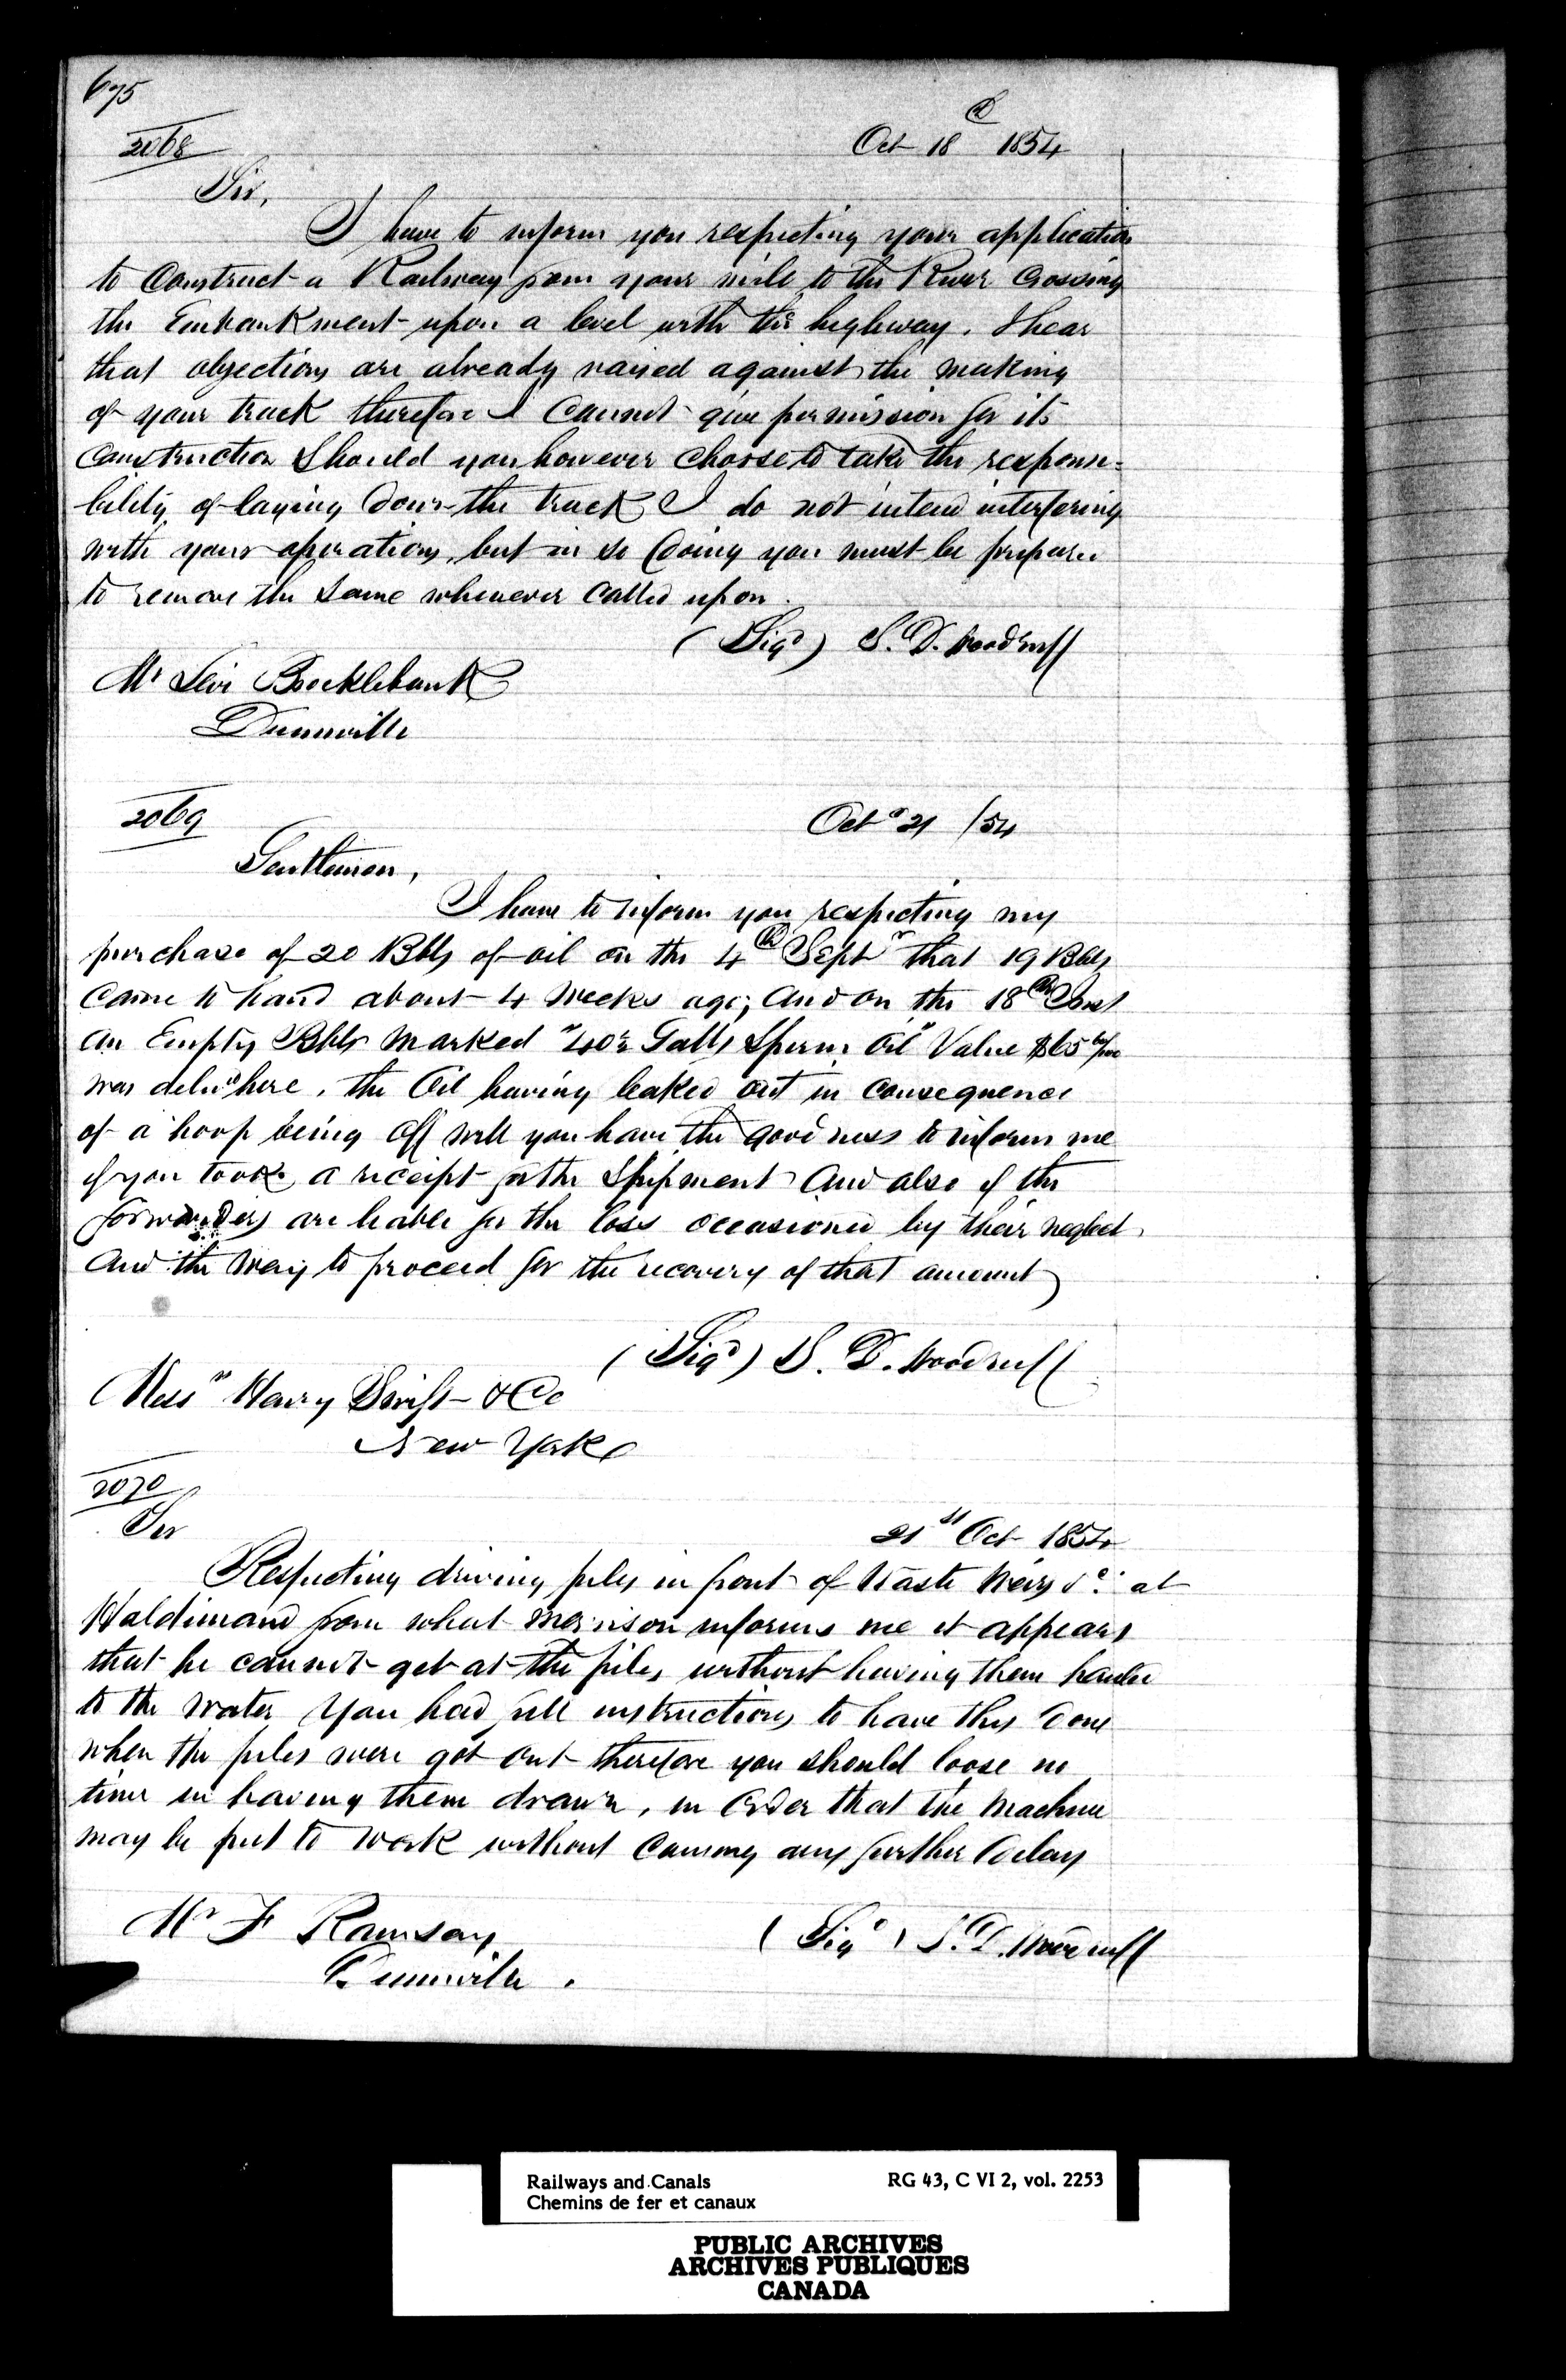 675
2068
Oct 18th 1854
Sir,
I have to inform you respecting your application
to Construct a Railway from your mill to the River Crossing
the Embankment upon a level with the highway. I hear
that objections are already raised against the making
of your track therefore I Cannot give permission for its
Construction Should you however choose to take the responsi=
bility of laying down the track I do not intend interfering
with your operations, but in so doing you must be prepared
to remove the same whenever Called upon.
(Sigd) S. D. Woodruff
Mr Levi Brocklebank
Dunnville
2069
Octr 21 /54
Gentlemen,
I have to inform you respecting my
purchase of 20 Bbls of oil on the 4th Septr that 19 Bbls
Came to hand about 4 weeks ago; and on the 18th Inst
an Empty Bbls marked "40½ Galls Sperm Oil" Value $65
was delivd here, the Oil having leaked out in consequence
of a hoop being off will you have the goodness to inform me
if you took a receipt for the Shipment and also if the
forwarders are liable for the loss occasioned by their neglect
and the way to proceed for the recovery of that amount
(Sigd) S. D. Woodruff
Messrs Harry Swift & Co
New York
2070
Sir
21st Oct 1854
Respecting driving piles in front of Waste Weirs &c: at
Haldimand from what Morrison informs me it appears
that he cannot get at the piles without having them hauled
to the water You had full instructions to have this done
when the piles were got out therefore you should loose no
time in having them drawn, in Order that the Machine
may be put to work without Causing any further delay
Mr F Ramsay
(Sigd) S. D. Woodruff
Dunnville.
Railways and Canals
Chemins de fer et canaux
RG 43, C VI 2, vol. 2253
PUBLIC ARCHIVES
ARCHIVES PUBLIQUES
CANADA